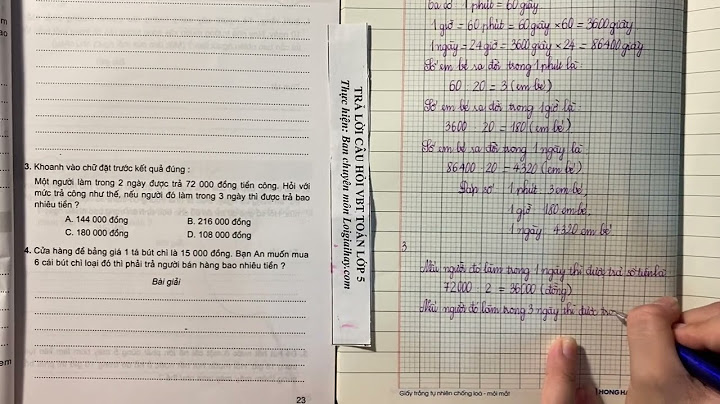 3. Khoanh vào chữ đặt trước kết quả đúng :
Một người làm trong 2 ngày được trả 72 000 đồng tiền công. Hỏi với
mức trả công như thế, nếu người đó làm trong 3 ngày thì được trả bao
nhiêu tiền ?
A. 144 000 đồng B. 216 000 đồng
C. 180 000 đồng D. 108 000 đồng
4. Cửa hàng để bảng giá 1 tá bút chì là 15 000 đồng. Bạn An muốn mua
6 cái bút chì loại đó thì phải trả người bán hàng bao nhiêu tiền ?
Bài giải
23
TRẢ LỜI CÂU HỎI VBT TOÁN LỚP 5
Thực hiện: Ban chuyên môn Loigiaihay.com
Ta có 1 phút = 60 giây
1 giờ = 60 phút = 60 giây × 60 = 3600 giây
1 ngày = 24 giờ = 3600 giây × 24 = 86400 giây
Số em bé ra đời trong 1 phút là
60 : 20 = 3 (em bé)
Số em bé ra đời trong 1 giờ là
3600 : 20 = 180 (em bé)
Số em bé ra đời trong 1 ngày là
86400 : 20 = 4320 (em bé)
Đáp số 1 phút 3 em bé
1 giờ 180 em bé
1 ngày 4320 em bé
3
Nếu người đó làm trong 1 ngày thì được trả số tiền là
72000 : 2 = 36000 (đồng)
Nếu người đó làm trong 3 ngày thì được trả
Giấy trắng tự nhiên chống loá - mỏi mắt
HONG HA